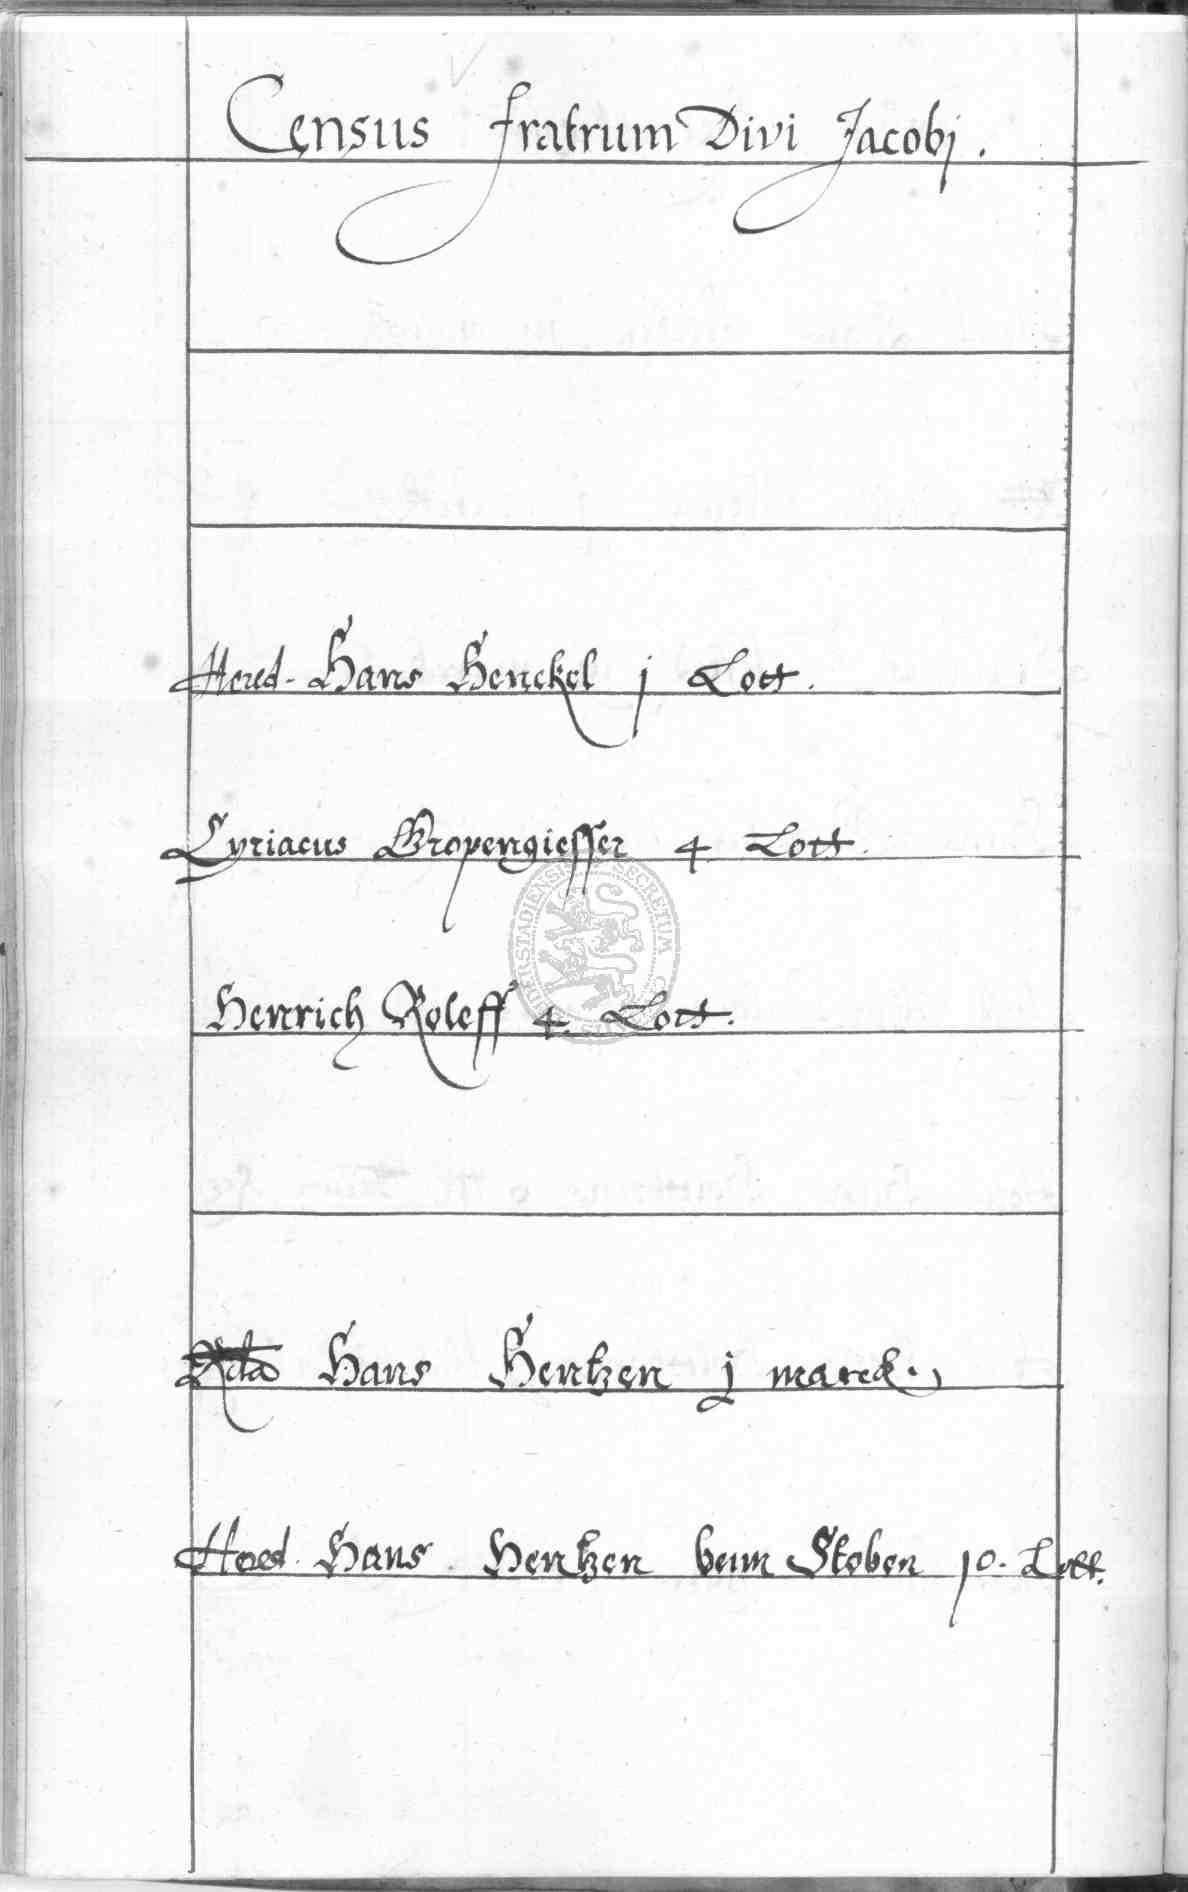 Census fratrum Divi Jacobj.
Hered. Hans Henckel j Lott.
Cyriacus Gropengiesser 4 Lott.
Henrich Roleff 4 Lott.
Hans Hentzen j marck.
Hered. Hans Hentzen beim Stoben 10. Lott.
SECRETUM